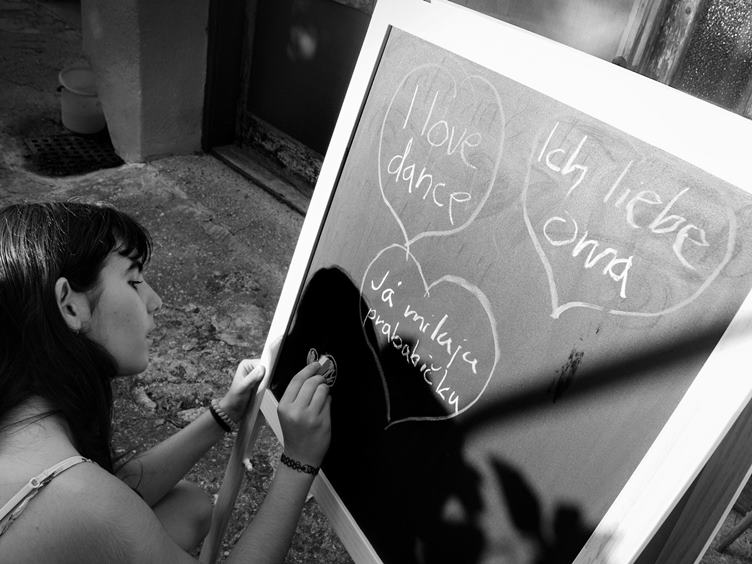 I love
dance
Ich liebe
oma
Já miluju
prababičku